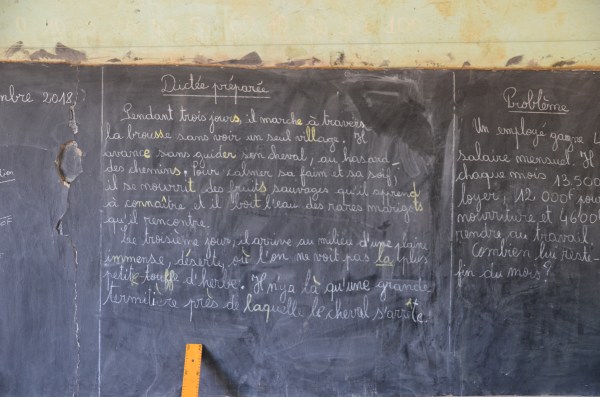 mbre 2018
Dictée préparée
Pendant trois jours, il marche à travers
la brousse sans voir un seul village. Il
avance sans guider son cheval, au hasard
des chemins. Pour calmer sa faim et sa soif,
il se nourrit des fruits sauvages qu'il apprend
à connaître et il boit l'eau des rares marigots
qu'il rencontre.
Le troisième jour, il arrive au milieu d'une plaine
immense, déserte, où l'on ne voit pas la plus
petite touffe d'herbe. Il n'y a là qu'une grande
termitière près de laquelle le cheval s'arrête.
Problème
Un employé gagne 4
salaire mensuel. Il
chaque mois 13.500
loyer, 12 000f pou
nourriture et 4600f
rendre au travail.
Combien lui reste-
fin du mois ?